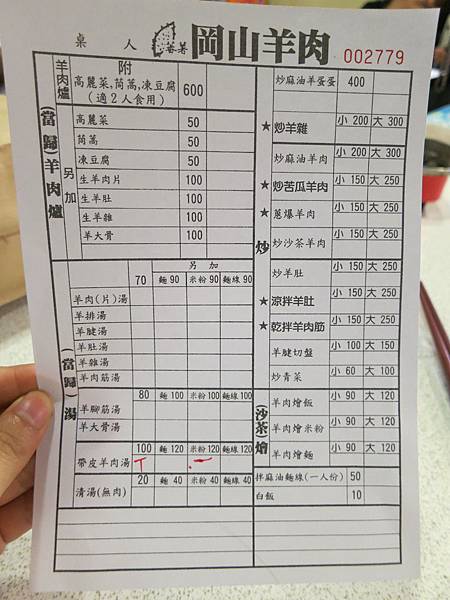 桌 人 蕃薯 岡山羊肉 002779
(當歸)羊肉爐
羊肉爐 附
高麗菜,茼蒿,凍豆腐 600
(適2人食用)
另加
高麗菜 50
茼蒿 50
凍豆腐 50
生羊肉片 100
生羊肚 100
生羊雜 100
羊大骨 100
(當歸)湯
另加
70 麵 90 米粉 90 麵線 90
羊肉(片)湯
羊排湯
羊腱湯
羊肚湯
羊雜湯
羊肉筋湯
80 麵 100 米粉 100 麵線 100
羊腳筋湯
羊大骨湯
100 麵 120 米粉 120 麵線 120
帶皮羊肉湯 T 一
20 麵 40 米粉 40 麵線 40
清湯(無肉)
炒
炒麻油羊蛋蛋 400
★炒羊雜 小 200 大 300
炒麻油羊肉 小 200 大 300
★炒苦瓜羊肉 小 150 大 250
★蔥爆羊肉 小 150 大 250
炒沙茶羊肉 小 150 大 250
炒羊肚 小 150 大 250
★涼拌羊肚 小 150 大 250
★乾拌羊肉筋 小 150 大 250
羊腱切盤 小 150 大 250
炒青菜 小 60 大 100
(沙茶)燴
羊肉燴飯 小 90 大 120
羊肉燴米粉 小 90 大 120
羊肉燴麵 小 90 大 120
拌麻油麵線(一人份) 50
白飯 10